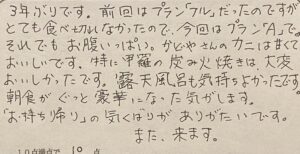 3年ぶりです。前回はプラン「フル」だったのですが
とても食べ切れなかったので、今回はプラン「A」で。
それでもお腹いっぱい。かどやさんのカニはすべて
おいしいです。特に甲羅の炭み火焼きは、大変
おいしかったです。露天風呂も気持ちよかったです。
朝食がぐっと豪華になった気がします。
「お持ち帰り」の気くばりがありがたいです。
また、来ます。
10点満点で 10 点